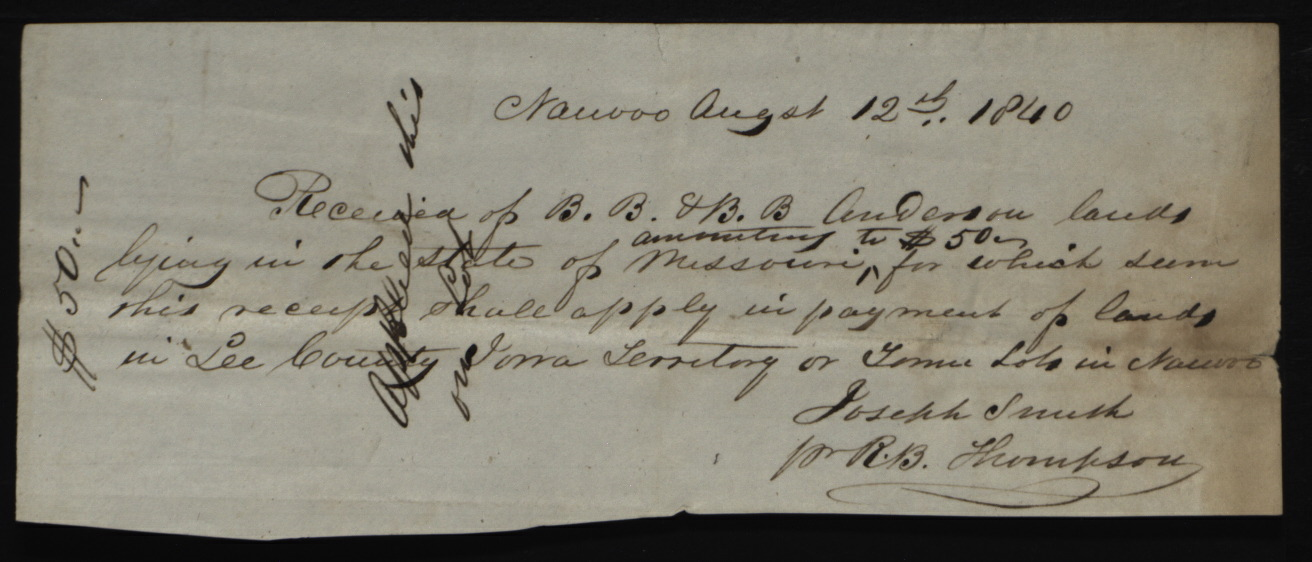 Nauvoo Augst 12th. 1840
Received of B. B. & B. B Anderson lands
amounting to $50–
lying in the state of Missouri, ^ for which sum
this receipt shall apply in payment of lands
in Lee County Iowa Territory or Town Lots in Nauvoo
Joseph Smith
pr R. B. Thompson
$50.–
Applied this
on Lot